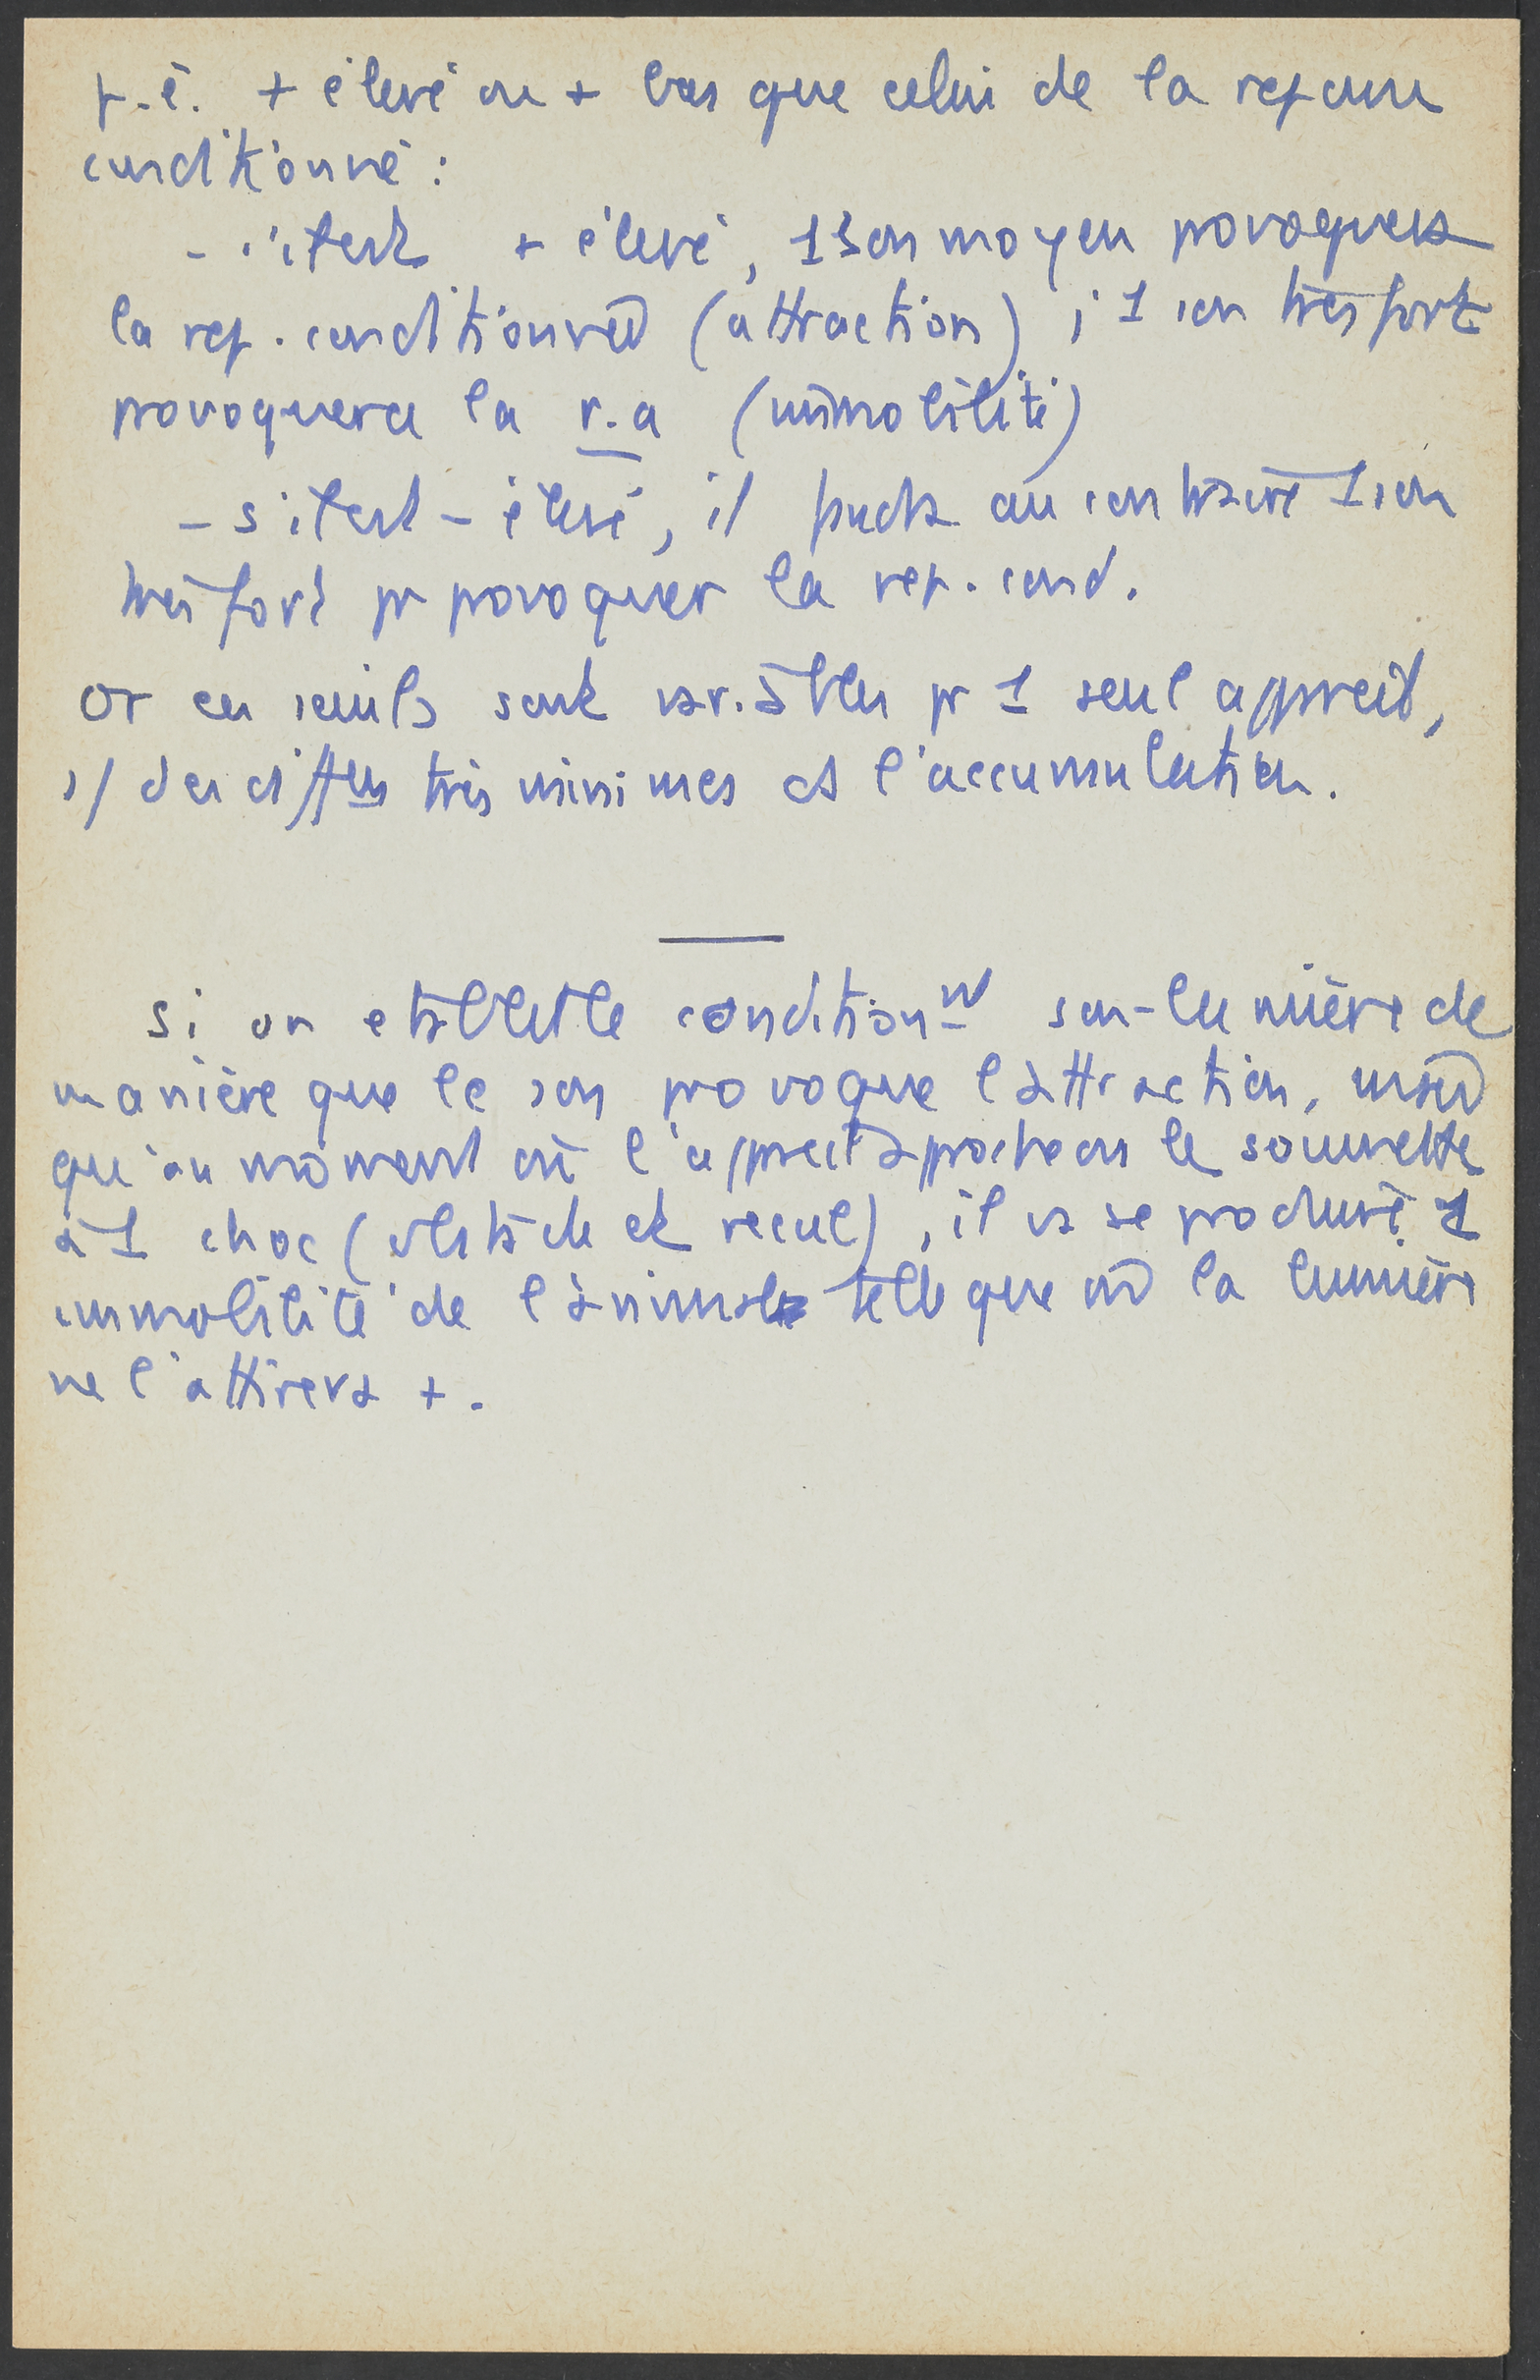 p.ê. + élevé ou + bas que celui de la réponse
conditionné :
- s'il est + élevé, 1 son moyen provoquera
la rép. conditionnée (attraction) ; 1 son très fort
provoquera la r.a (immobilité)
- s'il est - élevé, il faudra au contraire 1 son
très fort pr provoquer la rép. cond.
or ces seuils sont variables pr 1 seul appareil,
s/ des très minimes ds l'accumulation.
si on établit le conditionnt son-lumière de
manière que le son provoque l'attraction,
qu'au moment où l'appareil approche on le soumette
à 1 choc (obstacle et recul), il va se produire 1
immobilité de l'animal telle que la lumière
ne l'attirera +.